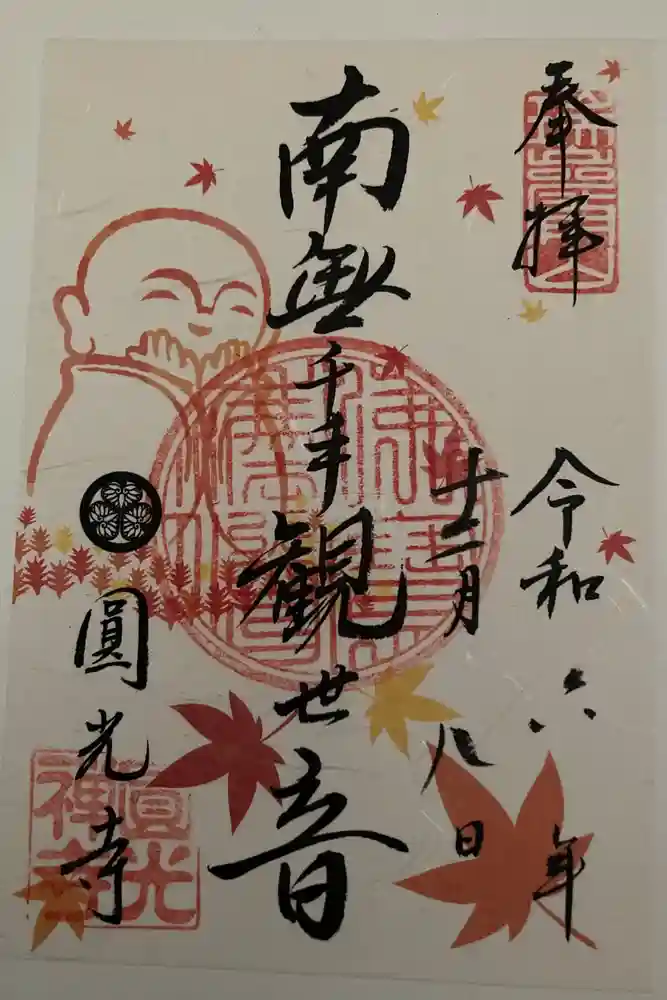 奉拝
令和六年
十二月八日
南無千手觀世音
圓光寺
圓光
禅寺